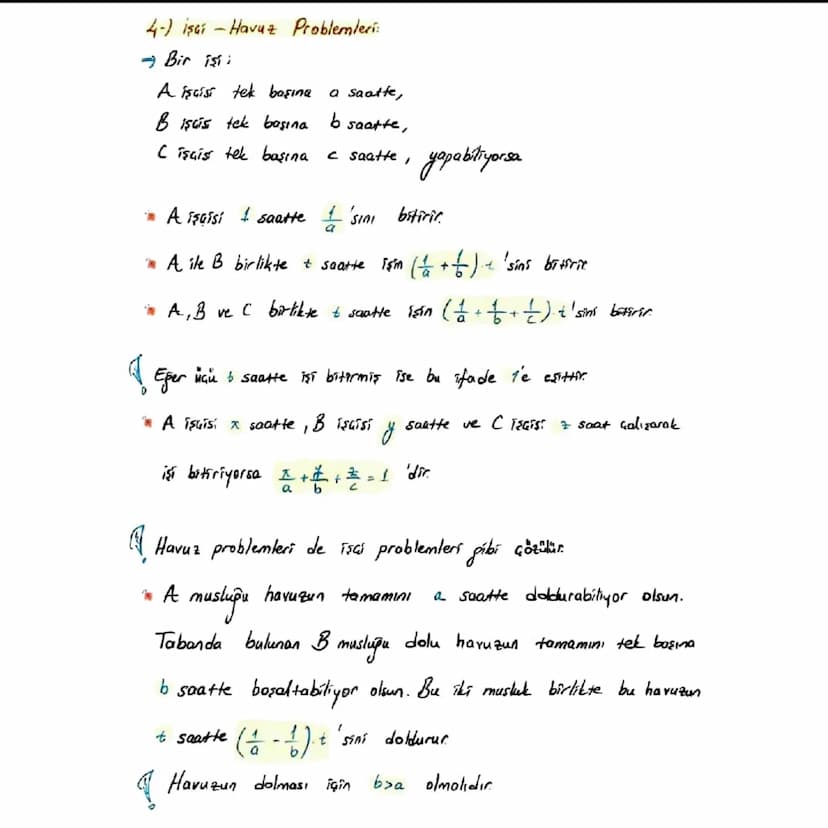 4-) İşçi - Havuz Problemleri:
→ Bir işi;
A işçisi tek başına a saatte,
B işçisi tek başına b saatte,
C işçisi tek başına c saatte, yapabiliyorsa
A işçisi 1 saatte 1/a 'sını bitirir.
A ile B birlikte t saatte işin (1/a + 1/b).t 'sini bitirir
A, B ve C birlikte t saatte işin (1/a + 1/b + 1/c).t'sini bitirir.
Eğer üçü t saatte işi bitirmiş ise bu ifade 1'e eşittir.
A işçisi x saatte, B işçisi y saatte ve C işçisi z saat çalışarak
işi bitiriyorsa x/a + y/b + z/c = 1 'dir.
Havuz problemleri de işçi problemleri gibi çözülür.
A musluğu havuzun tamamını a saatte doldurabiliyor olsun.
Tabanda bulunan B musluğu dolu havuzun tamamını tek başına
b saatte boşaltabiliyor olsun. Bu iki musluk birlikte bu havuzun
t saatte (1/a - 1/b).t 'sini doldurur.
Havuzun dolması için b>a olmalıdır.